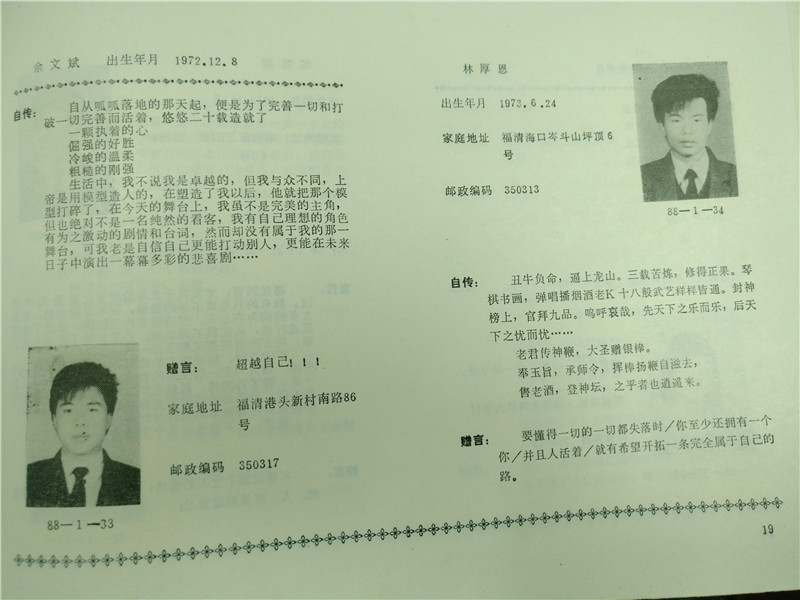 余文斌 出生年月 1972.12.8
自传： 自从呱呱落地的那天起，便是为了完善一切和打
破一切完善而活着，悠悠二十载造就了
一颗执着的心
倔强的好胜
冷峻的温柔
粗糙的刚强
生活中，我不说我是卓越的，但我与众不同，上
帝是用模型造人的，在塑造了我以后，他就把那个模
型打碎了，在今天的舞台上，我虽不是完美的主角，
但也绝对不是一名纯然的看客，我有自己理想的角色
有为之激动的剧情和台词，然而却没有属于我的那一
舞台，可我老是自信自己更能打动别人，更能在未来
日子中演出一幕幕多彩的悲喜剧……
赠言： 超越自己！！！
家庭地址 福清港头新村南路86
号
邮政编码 350317
88—1—33
林厚恩
出生年月 1973.6.24
家庭地址 福清海口岑斗山坪顶6
号
邮政编码 350313
88—1—34
自传： 丑牛负命，逼上龙山。三载苦炼，修得正果。琴
棋书画，弹唱播烟酒老K 十八般武艺样样皆通。封神
榜上，官拜九品。呜呼哀哉，先天下之乐而乐，后天
下之忧而忧……
老君传神鞭，大圣赠银棒。
奉玉旨，承师令，挥棒扬鞭自滋去，
售老酒，登神坛，之乎者也逍遥来。
赠言： 要懂得一切的一切都失落时／你至少还拥有一个
你／并且人活着／就有希望开拓一条完全属于自己的
路。
19